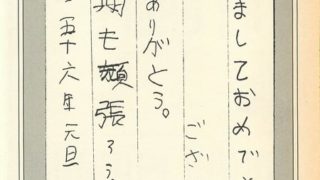 ましておめでと
ござ
ありがとう。
期も頑張ろう。
五十六年元旦